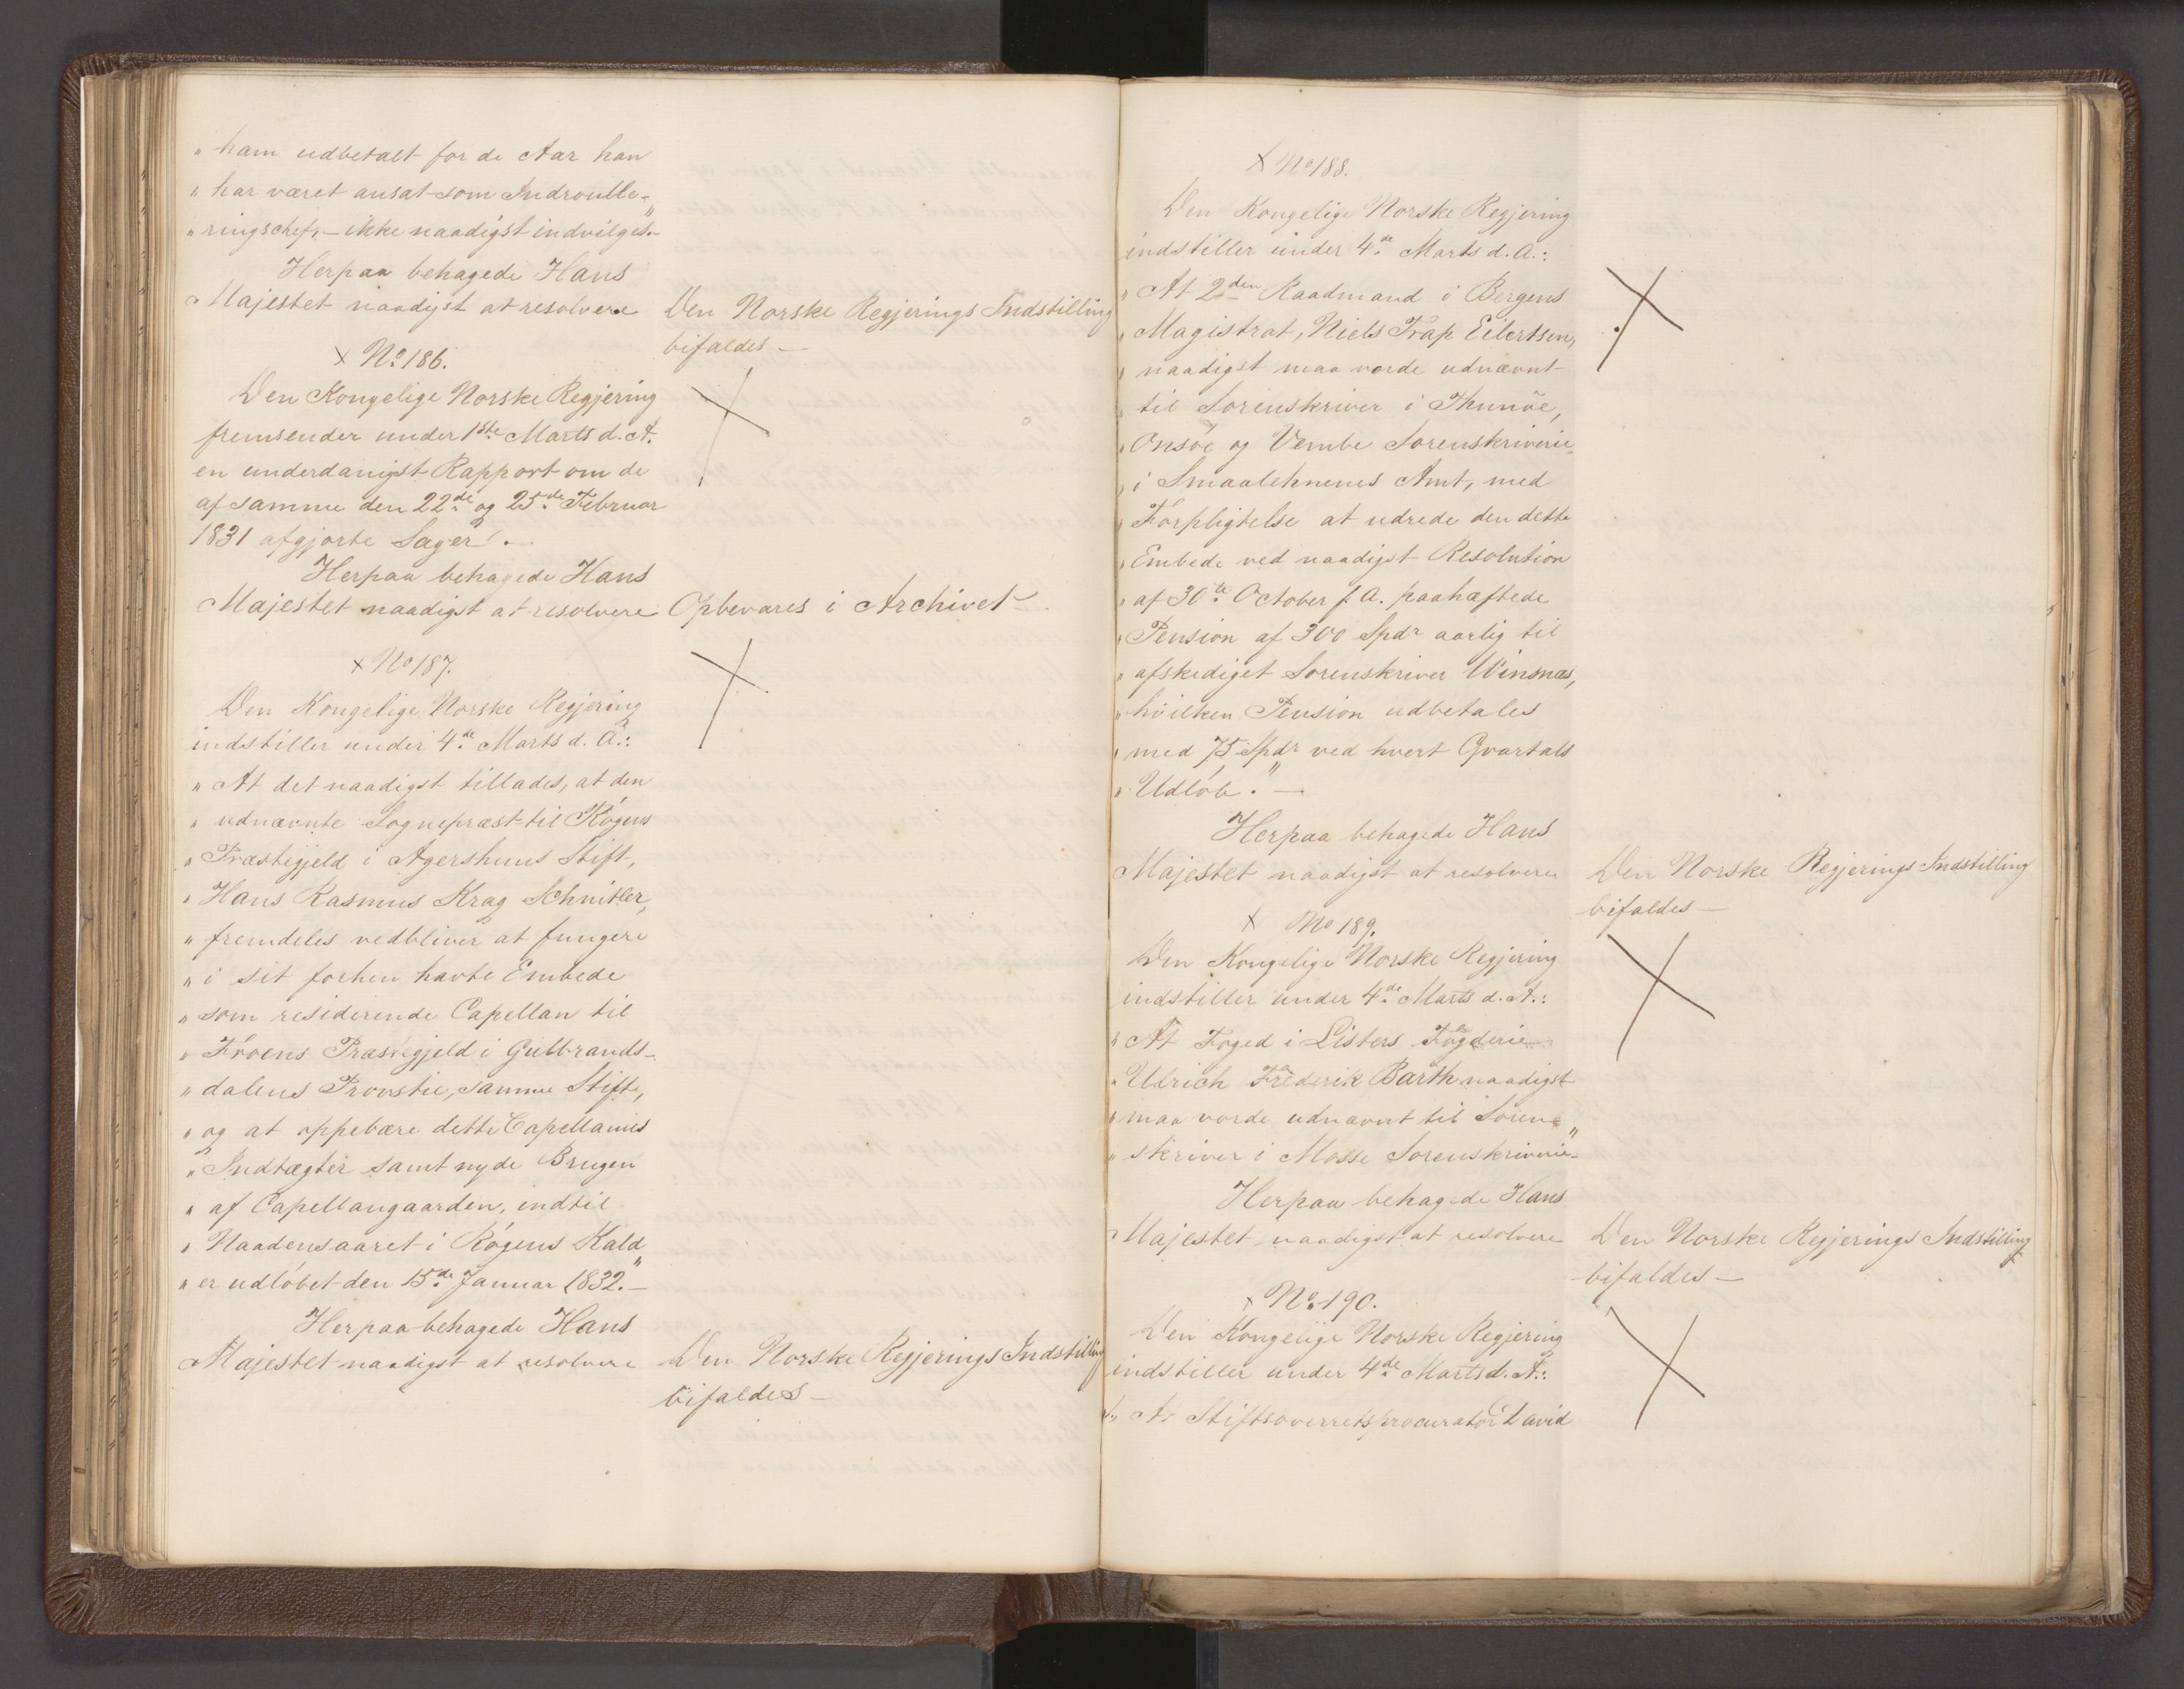 „ham udbetalt for de Aar han
„har været ansat som Indroulle-
„ringschef, - ikke naadigst indvilges."
Herpaa behagede Hans
Majestet naadigst at resolvere
Den Norske Regjerings Indstilling
bifaldes -
x No 186.
Den Kongelige Norske Regjering
fremsender under 1ste Marts d. A.
en underdanigst Rapport om de
af samme den 22de og 25de Februar
1831 afgjorte Sager. -
Herpaa behagede Hans
Majestet naadigst at resolvere
Opbevares i Archivet -
x No 187.
Den Kongelige Norske Regjering
indstiller under 4de Marts d. A.:
„At det naadigst tillades, at den
„udnævnte Sognepræst til Røgens
„Præstegjeld i Agershuus Stift,
„Hans Rasmus Krag Schnitler,
„fremdeles vedbliver at fungere
„i sit forhen havte Embede
„som residerende Capellan til
„Froens Præstegjeld i Gulbrands-
„dalens Provstie, samme Stift,
„og at oppebære dette Capellanies
„Indtægter samt nyde Brugen
„af Capellangaarden, indtil
„Naadensaaret i Røgens Kald
„er udløbet den 15de Januar 1832." -
Herpaa behagede Hans
Majestet naadigst at resolvere
Den Norske Regjerings Indstilling
bifaldes -
x No 188.
Den Kongelige Norske Regjering
indstiller under 4de Marts d. A.:
„At 2den Raadmand i Bergens
„Magistrat, Niels Trap Eilertsen,
„naadigst maa vorde udnævnt
„til Sorenskriver i Thunöe,
„Onsöe og Vembe Sorenskriverie
„i Smaalehnenes Amt, med
„Forpligtelse at udrede den dette
„Embede ved naadigst Resolution
„af 30te October f. A. paahæftede
„Pension af 300 Spdr aarlig til
„afskediget Sorenskriver Winsnæs,
„hvilken Pension udbetales
„med 75 Spdr ved hvert Qvartals
„Udløb." -
Herpaa behagede Hans
Majestet naadigst at resolvere
Den Norske Regjerings Indstilling
bifaldes -
x No 189.
Den Kongelige Norske Regjering
indstiller under 4de Marts d. A.:
„At Foged i Listers Fogderie
„Ulrich Frederik Barth naadigst
„maa vorde udnævnt til Soren-
„skriver i Mosse Sorenskriverie"
Herpaa behagede Hans
Majestet naadigst at resolvere
Den Norske Regjerings Indstilling
bifaldes -
x No 190.
Den Kongelige Norske Regjering
indstiller under 4de Marts d. A.:
„At Stiftsoverretsprocurator David